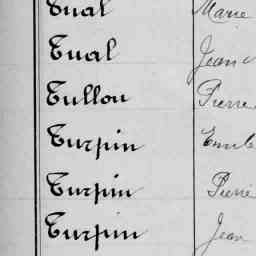 Tual Marie
Tual Jean
Tullou Pierre
Turpin
Turpin Pierre
Turpin Jean